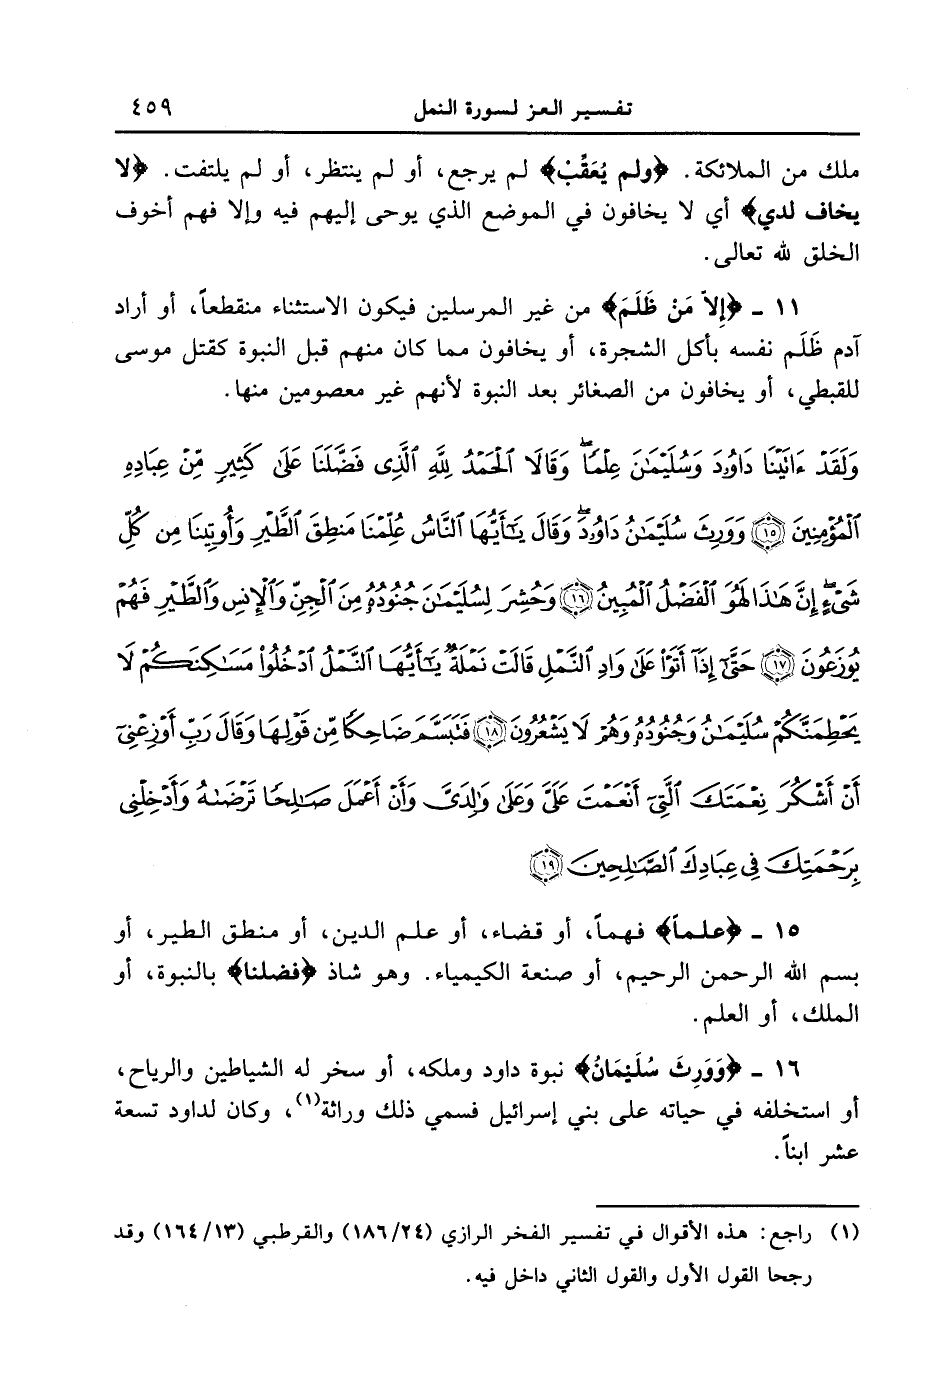 تفسير العز لسورة النمل ٤٥٩
ملك من الملائكة. ﴿ولم يُعَقِّبْ﴾ لم يرجع، أو لم ينتظر، أو لم يلتفت. ﴿لا
يخاف لدي﴾ أي لا يخافون في الموضع الذي يوحى إليهم فيه وإلا فهم أخوف
الخلق لله تعالى.
١١ ـ ﴿إِلاّ مَنْ ظَلَمَ﴾ من غير المرسلين فيكون الاستثناء منقطعاً، أو أراد
آدم ظَلَم نفسه بأكل الشجرة، أو يخافون مما كان منهم قبل النبوة كقتل موسى
للقبطي، أو يخافون من الصغائر بعد النبوة لأنهم غير معصومين منها.
وَلَقَدْ ءَاتَيْنَا دَاوُۥدَ وَسُلَيْمَٰنَ عِلْمًاۖ وَقَالَا ٱلْحَمْدُ لِلَّهِ ٱلَّذِى فَضَّلَنَا عَلَىٰ كَثِيرٍ مِّنْ عِبَادِهِ
ٱلْمُؤْمِنِينَ ﴿١٥﴾ وَوَرِثَ سُلَيْمَٰنُ دَاوُۥدَۖ وَقَالَ يَٰٓأَيُّهَا ٱلنَّاسُ عُلِّمْنَا مَنطِقَ ٱلطَّيْرِ وَأُوتِينَا مِن كُلِّ
شَىْءٍۖ إِنَّ هَٰذَا لَهُوَ ٱلْفَضْلُ ٱلْمُبِينُ ﴿١٦﴾ وَحُشِرَ لِسُلَيْمَٰنَ جُنُودُهُۥ مِنَ ٱلْجِنِّ وَٱلْإِنسِ وَٱلطَّيْرِ فَهُمْ
يُوزَعُونَ ﴿١٧﴾ حَتَّىٰٓ إِذَآ أَتَوْا۟ عَلَىٰ وَادِ ٱلنَّمْلِ قَالَتْ نَمْلَةٌ يَٰٓأَيُّهَا ٱلنَّمْلُ ٱدْخُلُوا۟ مَسَٰكِنَكُمْ لَا
يَحْطِمَنَّكُمْ سُلَيْمَٰنُ وَجُنُودُهُۥ وَهُمْ لَا يَشْعُرُونَ ﴿١٨﴾ فَتَبَسَّمَ ضَاحِكًا مِّن قَوْلِهَا وَقَالَ رَبِّ أَوْزِعْنِىٓ
أَنْ أَشْكُرَ نِعْمَتَكَ ٱلَّتِىٓ أَنْعَمْتَ عَلَىَّ وَعَلَىٰ وَٰلِدَىَّ وَأَنْ أَعْمَلَ صَٰلِحًا تَرْضَىٰهُ وَأَدْخِلْنِى
بِرَحْمَتِكَ فِى عِبَادِكَ ٱلصَّٰلِحِينَ ﴿١٩﴾
١٥ ـ ﴿علماً﴾ فهماً، أو قضاء، أو علم الدين، أو منطق الطير، أو
بسم الله الرحمن الرحيم، أو صنعة الكيمياء. وهو شاذ ﴿فضلنا﴾ بالنبوة، أو
الملك، أو العلم.
١٦ ـ ﴿وَوَرِثَ سُلَيْمَانُ﴾ نبوة داود وملكه، أو سخر له الشياطين والرياح،
أو استخلفه في حياته على بني إسرائيل فسمي ذلك وراثة(١)، وكان لداود تسعة
عشر ابناً.
(١) راجع: هذه الأقوال في تفسير الفخر الرازي (١٨٦/٢٤) والقرطبي (١٦٤/١٣) وقد
رجحا القول الأول والقول الثاني داخل فيه.